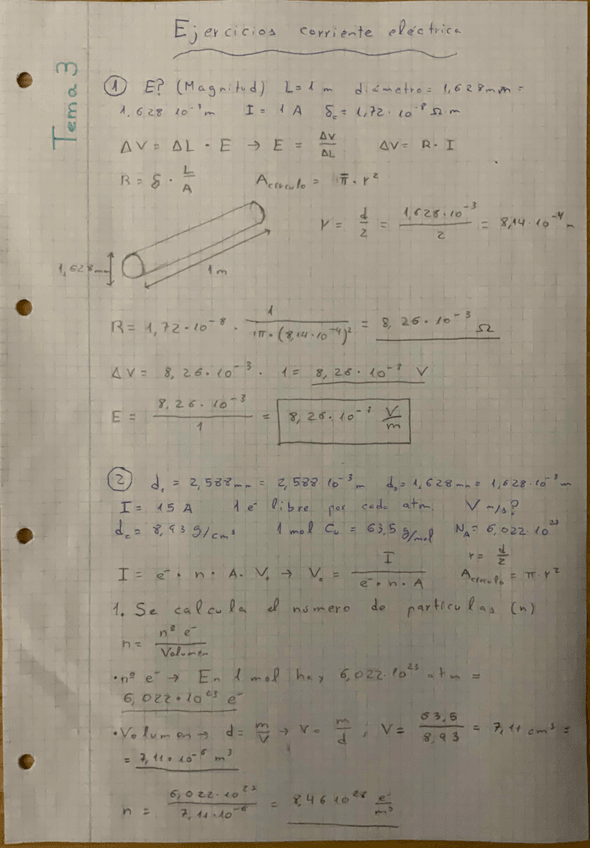 Ejercicios corriente eléctrica
Tema 3
① E? (Magnitud) L=1 m diámetro = 1,628mm =
1,628 10⁻³ m I = 1 A δc = 1,72·10⁻⁸ Ω·m
ΔV = ΔL · E → E = ΔV/ΔL ΔV = R · I
R = δ · L/A Acírculo = π · r²
r = d/2 = 1,628·10⁻³/2 = 8,14·10⁻⁴ m
1,628mm
1m
R = 1,72·10⁻⁸ · 1/(π·(8,14·10⁻⁴)²) = 8,26·10⁻³ Ω
ΔV = 8,26·10⁻³ · 1 = 8,26·10⁻³ V
E = 8,26·10⁻³/1 = 8,26·10⁻³ V/m
② d₁ = 2,588mm = 2,588 10⁻³ m d₂ = 1,628mm = 1,628·10⁻³ m
I = 15 A 1 e⁻ libre por cada atm. V m/s?
dc = 8,93 g/cm³ 1 mol Cu = 63,5 g/mol NA = 6,022·10²³
r = d/2
I = e⁻ · n · A · Vₐ → Vₐ = I/(e⁻·n·A) Acírculo = π·r²
1. Se calcula el número de partículas (n)
n = nº e⁻/Volumen
·nº e⁻ → En 1 mol hay 6,022·10²³ atm =
6,022·10²³ e⁻
·Volumen → d = m/V → V = m/d ; V = 63,5/8,93 = 7,11 cm³ =
= 7,11·10⁻⁶ m³
n = 6,022·10²³/7,11·10⁻⁶ = 8,46 10²⁸ e⁻/m³